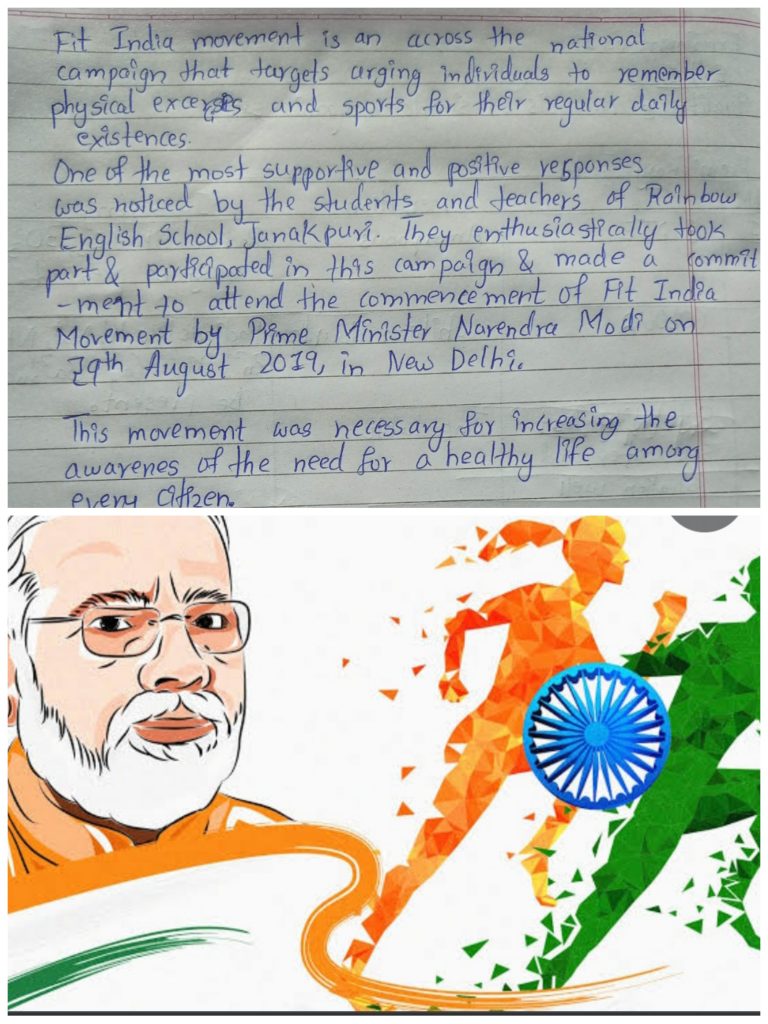 Fit India movement is an across the national
campaign that targets urging individuals to remember
physical and sports for their regular daily
existences.
One of the most supportive and positive responses
was noticed by the students and teachers of Rainbow
English School, Janakpuri. They enthusiastically took
part & participated in this campaign & made a commit
-ment to attend the commencement of Fit India
Movement by Prime Minister Narendra Modi on
29th August 2019, in New Delhi.
This movement was necessary for increasing the
awarenes of the need for a healthy life among
every citizen.